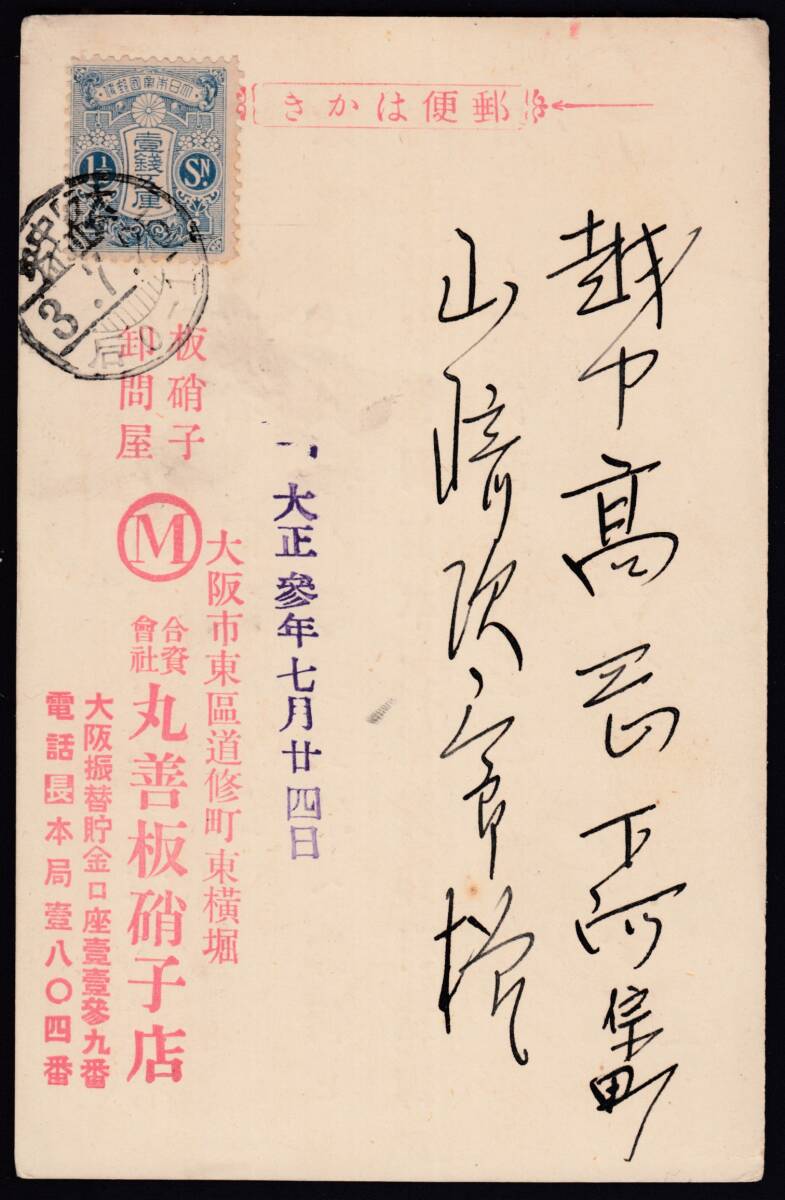 郵便はかき
大日本帝國郵便
壹錢五厘
1½
SN.
3.7.
越中高岡下川原町
山﨑次三郎様
大正參年七月廿四日
板硝子
卸問屋
M
大阪市東區道修町東横堀
合資會社
丸善板硝子店
大阪振替貯金口座壹壹參九番
電話長本局壹八〇四番